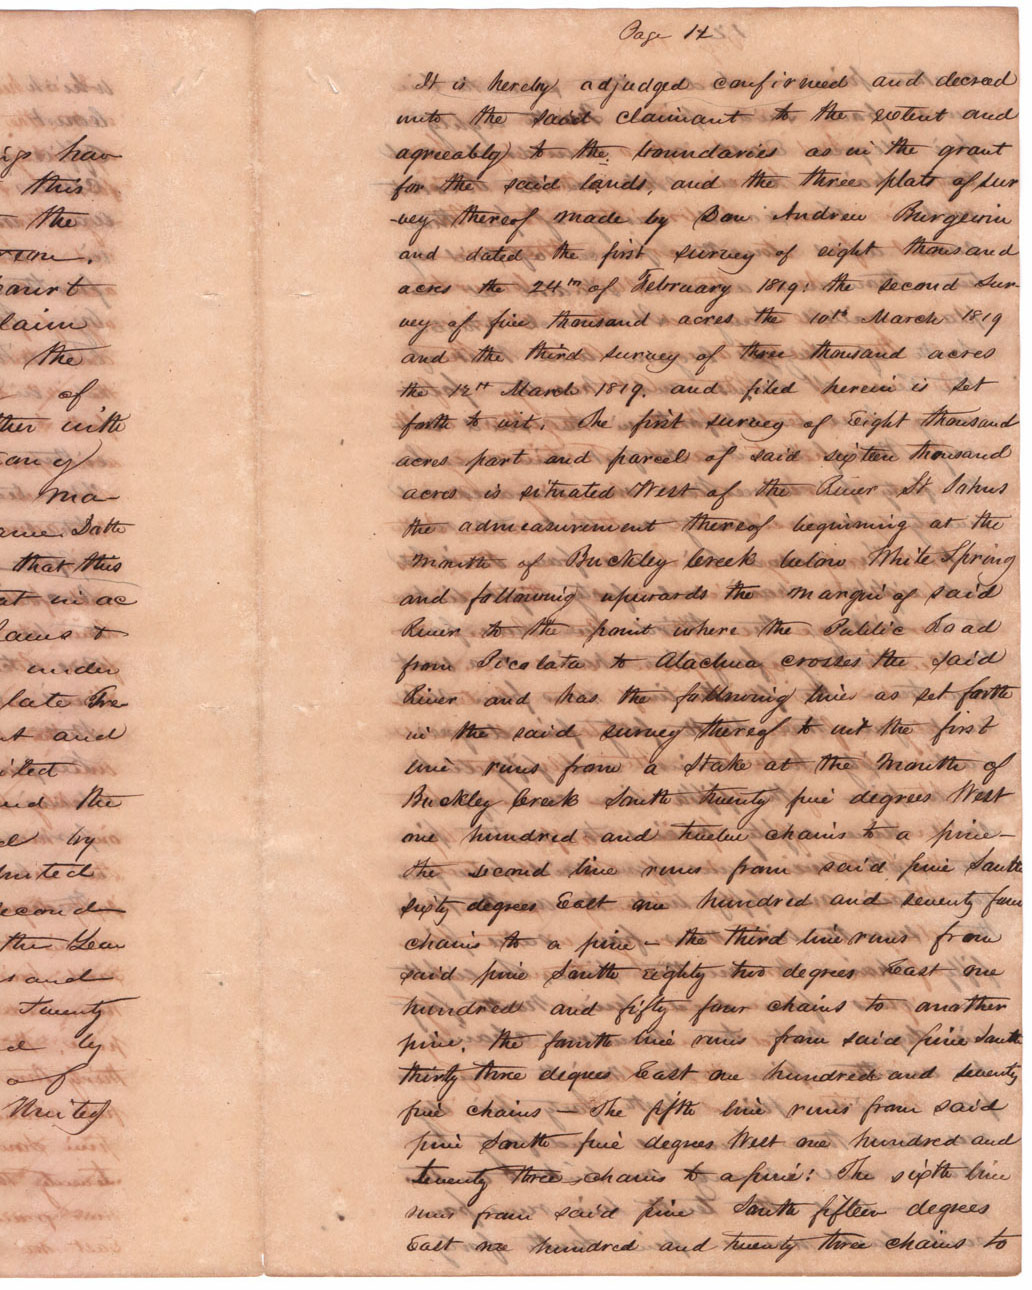 ings hav
this
the
court
laim
the
of
ther with
any
ma-
that this
at in ac
under
late Tre
and
and the
ed by
United
second
the Year
and
Twenty
ed by
of
United
Page 14
It is hereby adjudged confirmed and decreed
unto the said claimant to the extent and
agreeably to the boundaries as in the grant
for the said lands, and the three plats of sur
-vey thereof made by Don Andrew Burgevin
and dated the first survey of eight thousand
acres the 24th of February 1819: the second sur-
vey of five thousand acres the 10th March 1819
and the third survey of three thousand acres
the 12th March 1819. and filed herein is set
forth to wit. The first survey of Eight thousand
acres part and parcel of said sixteen thousand
acres is situated West of the River St Johns
the admeasurement thereof beginning at the
Mouth of Buckley Creek below White Spring
and following upwards the margin of said
River to the point where the Public Road
from Picolata to Alachua crosses the said
River and has the following lines as set forth
in the said survey thereof to wit the first
line runs from a Stake at the Mouth of
Buckley Creek South twenty five degrees West
one hundred and twelve chains to a pine-
the second line runs from said pine South
sixty degrees East one hundred and seventy four
chains to a pine - the third line runs from
said pine South Eighty two degrees East one
hundred and fifty four chains to another
pine. the fourth line runs from said pine South
thirty three degrees East one hundred and seventy
five chains - The fifth line runs from said
pine South five degrees West one hundred and
twenty three chains to a pine: The sixth line
runs from said pine South fifteen degrees
East one hundred and twenty three chains to